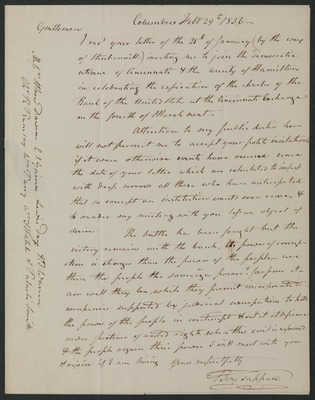 Columbus Feby 29th 1836
Gentlemen
I recd your letter of the 25th of January (by the way
of Steubenville) inviting me to join the democratic
citizens of Cincinnati & the county of Hamilton
in celebrating the expiration of the charter of the
Bank of the United States at the Cincinnati Exchange
on the fourth of March next.
Attention to my public duties here
will not permit me to accept your polite invitation
if it were otherwise events have occurred since
the date of your letter which are calculated to impress
with deep sorrow all those who have anticipated
that so corrupt an institution would soon cease, &
to render my meeting with you less an object of
desire.
The battle has been fought but the
victory remains with the bank, the power of
is stronger than the power of the people are
then the people the sovereign power? I suppose it is
now will they be, while they permit incorporated
companies supported by judicial usurpation to hold
the power of the people in contempt & set at defiance
when this evil is reformed
& the people regain their power I will meet with you
& rejoice if I am living Yours respectfully
Tappan